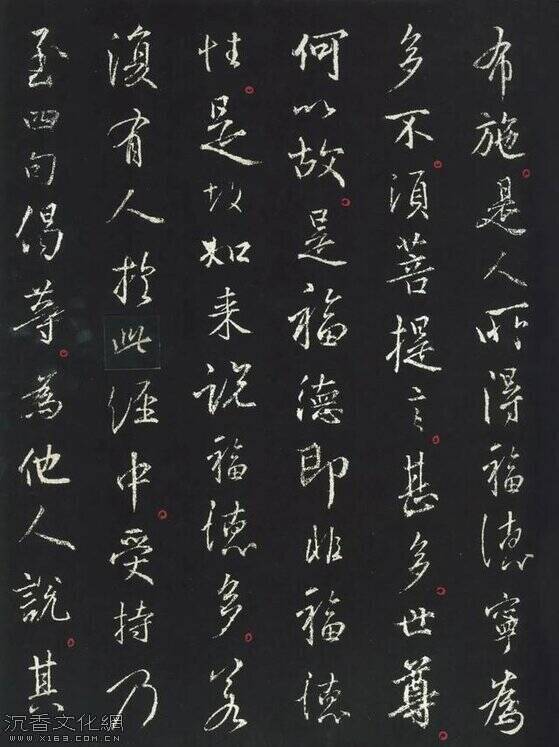 布施是人所得福德寧為
多不須菩提言甚多世尊
何以故是福德即非福德
性是故如来說福德多若
復有人於此經中受持乃
至四句偈等為他人說其
沉香文化網
WWW.X169.COM.CN